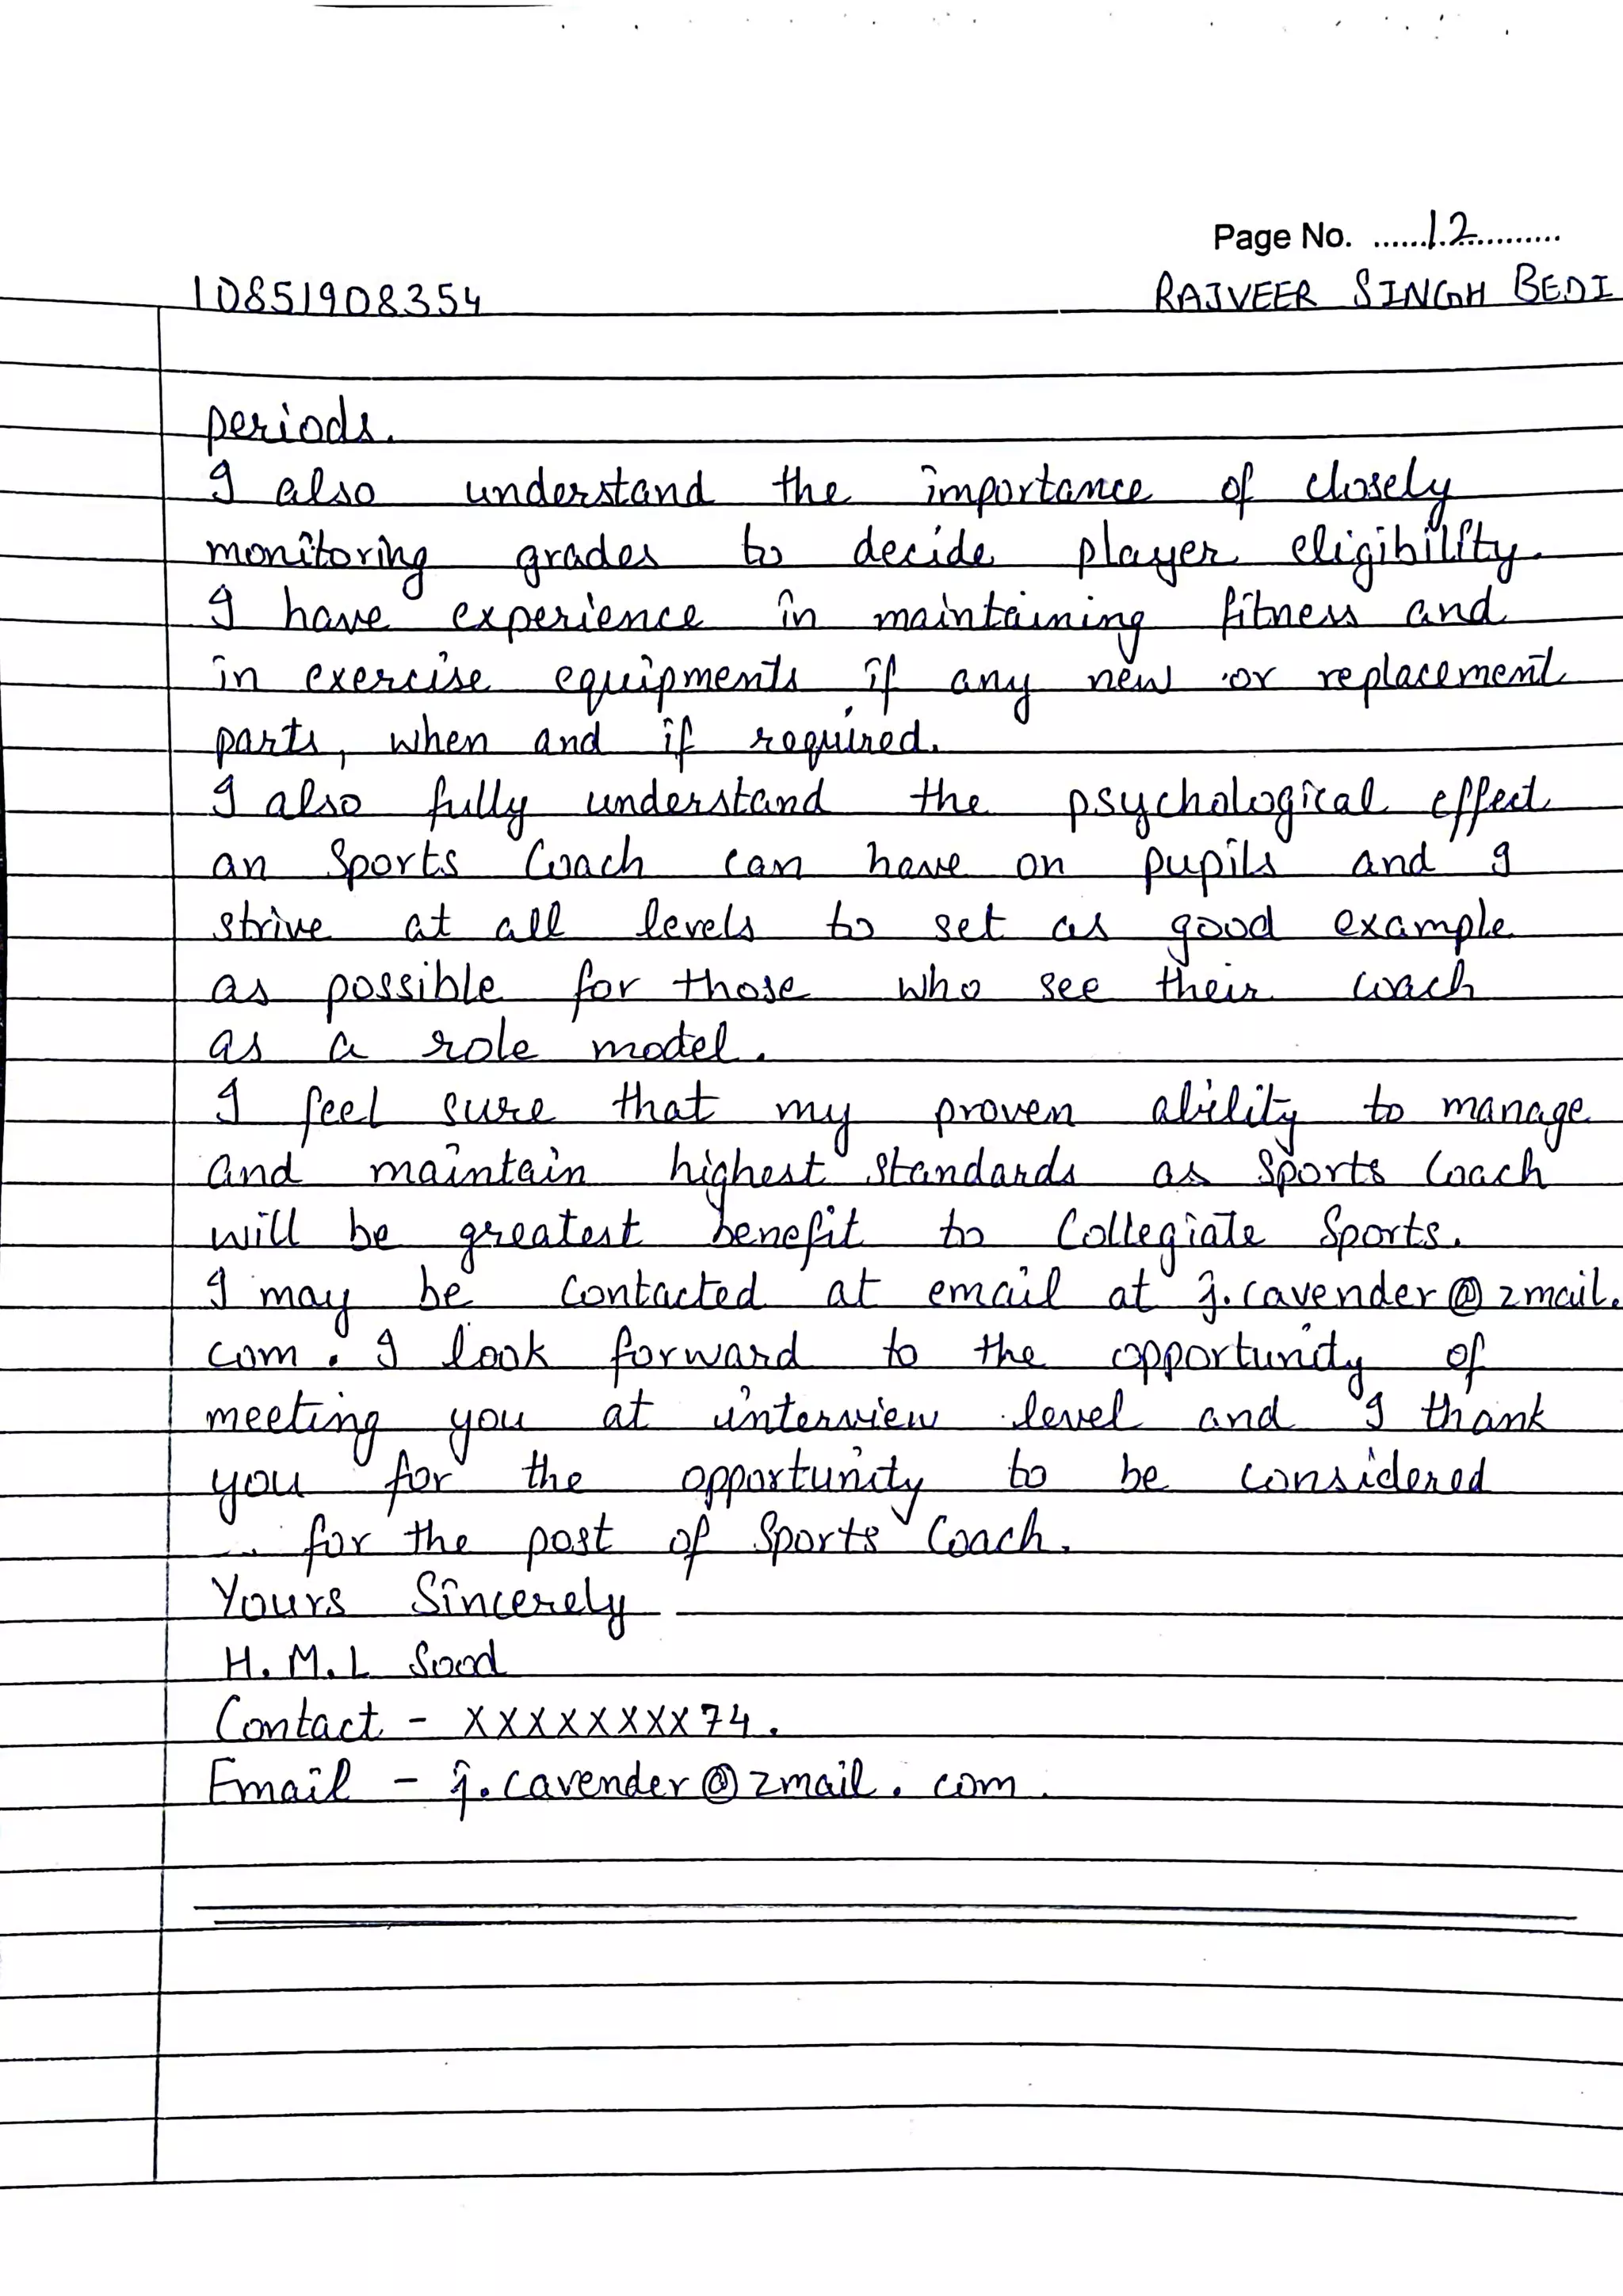 Page No. ......12............
10851908354 RAJVEER SINGH BEDI
periods.
I also understand the importance of closely
monitoring grades to decide player eligibility.
I have experience in maintaining fitness and
in exercise equipments if any new or replacement
parts, when and if required.
I also fully understand the psychological effect
an Sports Coach can have on pupils and I
strive at all levels to set as good example
as possible for those who see their coach
as a role model.
I feel sure that my proven ability to manage
and maintain highest standards as Sports Coach
will be greatest benefit to Collegiate Sports.
I may be contacted at email at j.cavender@zmail.
com. I look forward to the opportunity of
meeting you at interview level and I thank
you for the opportunity to be considered
for the post of Sports Coach.
Yours Sincerely
H.M.L Sood
Contact - XXXXXXXX74.
Email - j.cavender@zmail.com.